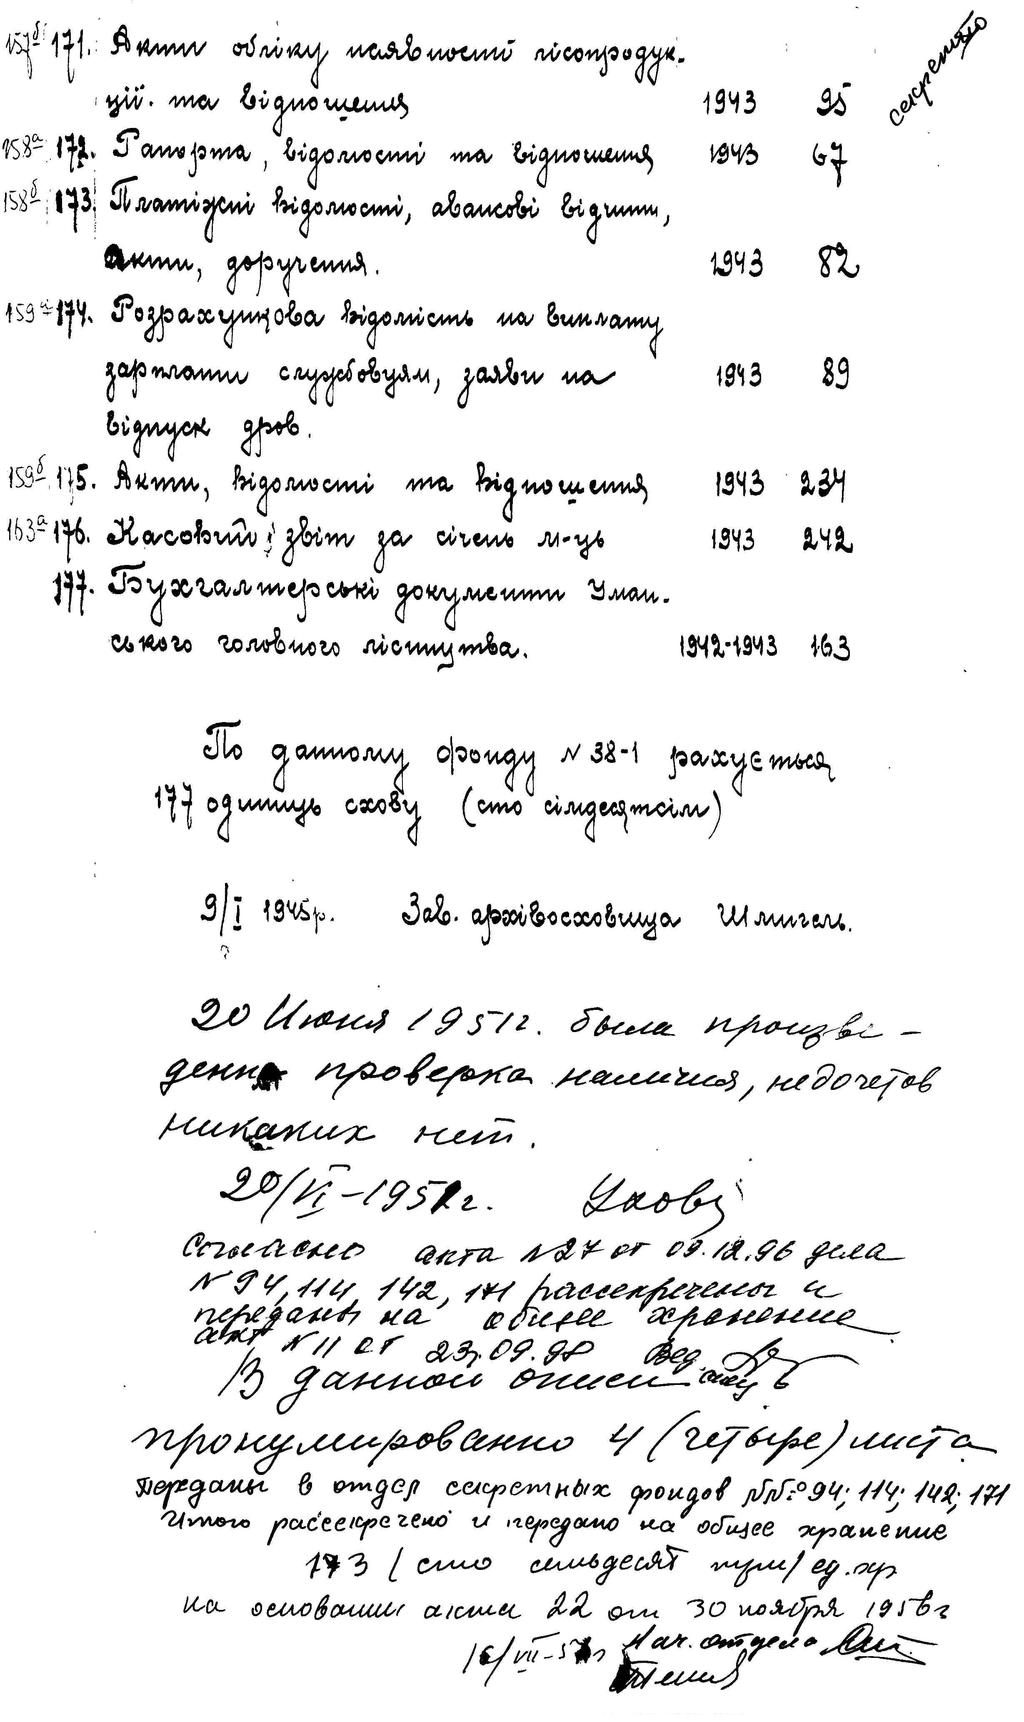 секретно
157б 171. Акти обліку наявності лісопродук-
ції. та відношення 1943 95
158а 172. Рапорта, відомості та відношення 1943 67
158б 173. Платіжні відомості, авансові відчити,
акти, доручення. 1943 82
159а 174. Розрахункова відомість на виплату
зарплати службовцям, заяви на 1943 89
відпуск дров.
159б 175. Акти, відомості та відношення 1943 234
163а 176. Касовий і звіт за січень м-ць 1943 242
177. Бухгалтерські документи Уман-
ського головного лісництва. 1942-1943 163
По данному фонду N 38-1 рахується
177 одиниць схову (сто сімдесятсім)
9/I 1945р. Зав. архівосховища Шмигель.
20 Июня 1951г. была произве-
денна проверка наличия, недочетов
никаких нет.
20/VI-1951г.
Согласно акта N27 от 09.12.96 дела
N 94, 114, 142, 171 рассекречены и
переданы на общее хранение
акт N 11 от 23.09.98 Вед.
В данной описи
пронумированно 4 (четыре) листа
Переданы в отдел секретных фондов №№ 94; 114; 142; 171
Итого рассекречено и передано на общее хранение
173 (сто семьдесят три) ед. хр
на основании акта 22 от 30 ноября 1956г
Нач. отдела